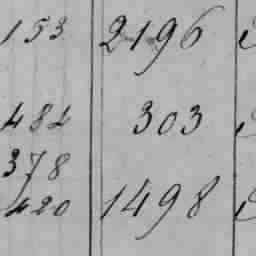 153 2196
482 303
378
420 1498